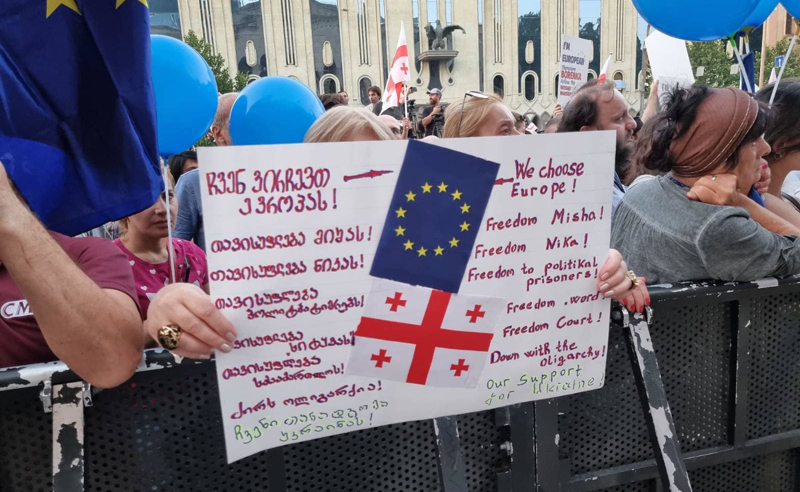 I'M
EUROPEAN
BORENKA
CM
ჩვენ ვირჩევთ
ევროპას!
თავისუფლება მიშას!
თავისუფლება ნიკას!
თავისუფლება
პოლიტპატიმრებს!
ვისუფლება
სიტყვას!
თავისუფლება
სასამართლოს!
ძირს ოლიგარქია!
ჩვენი თანადგომა
უკრაინას!
We choose
Europe!
Freedom Misha!
Freedom Nika!
Freedom to politikal
prisoners!
Freedom word!
Freedom Court!
Down with the
oligarchy!
Our Support
for Ukraine!